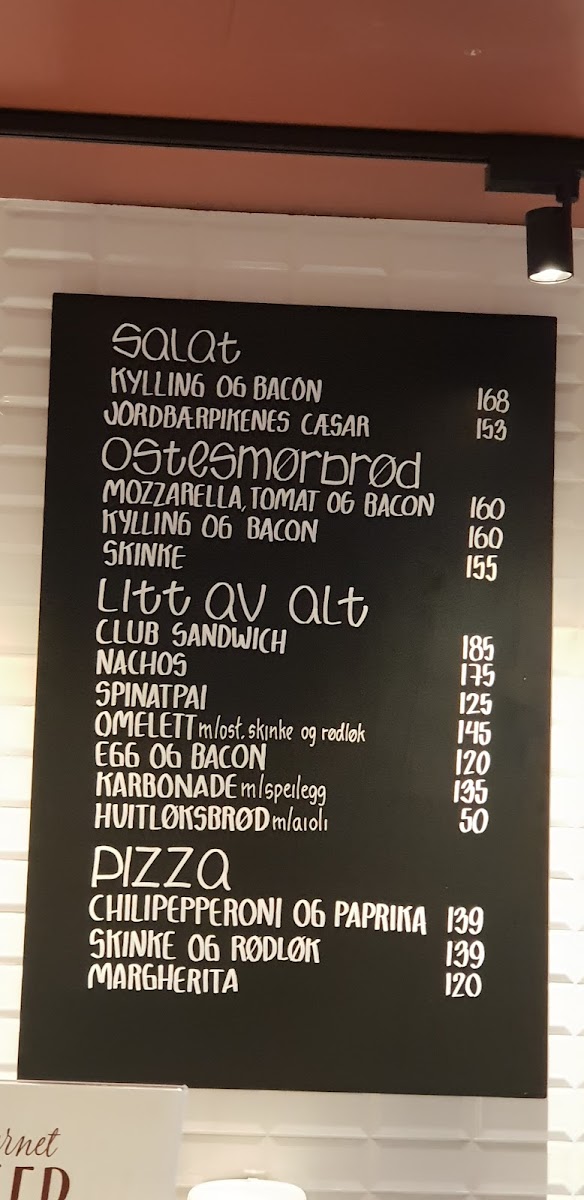 Salat
KYLLING OG BACON 168
JORDBÆRPIKENES CÆSAR 153
Ostesmørbrød
MOZZARELLA, TOMAT OG BACON 160
KYLLING OG BACON 160
SKINKE 155
Litt av alt
CLUB SANDWICH 185
NACHOS 175
SPINATPAI 125
OMELETT m/ost, skinke og rødløk 145
EGG OG BACON 120
KARBONADE m/speilegg 135
HVITLØKSBRØD m/aioli 50
PIZZA
CHILIPEPPERONI OG PAPRIKA 139
SKINKE OG RØDLØK 139
MARGHERITA 120